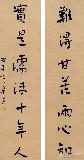 難得甘苦兩心知
實是濡沫十年人